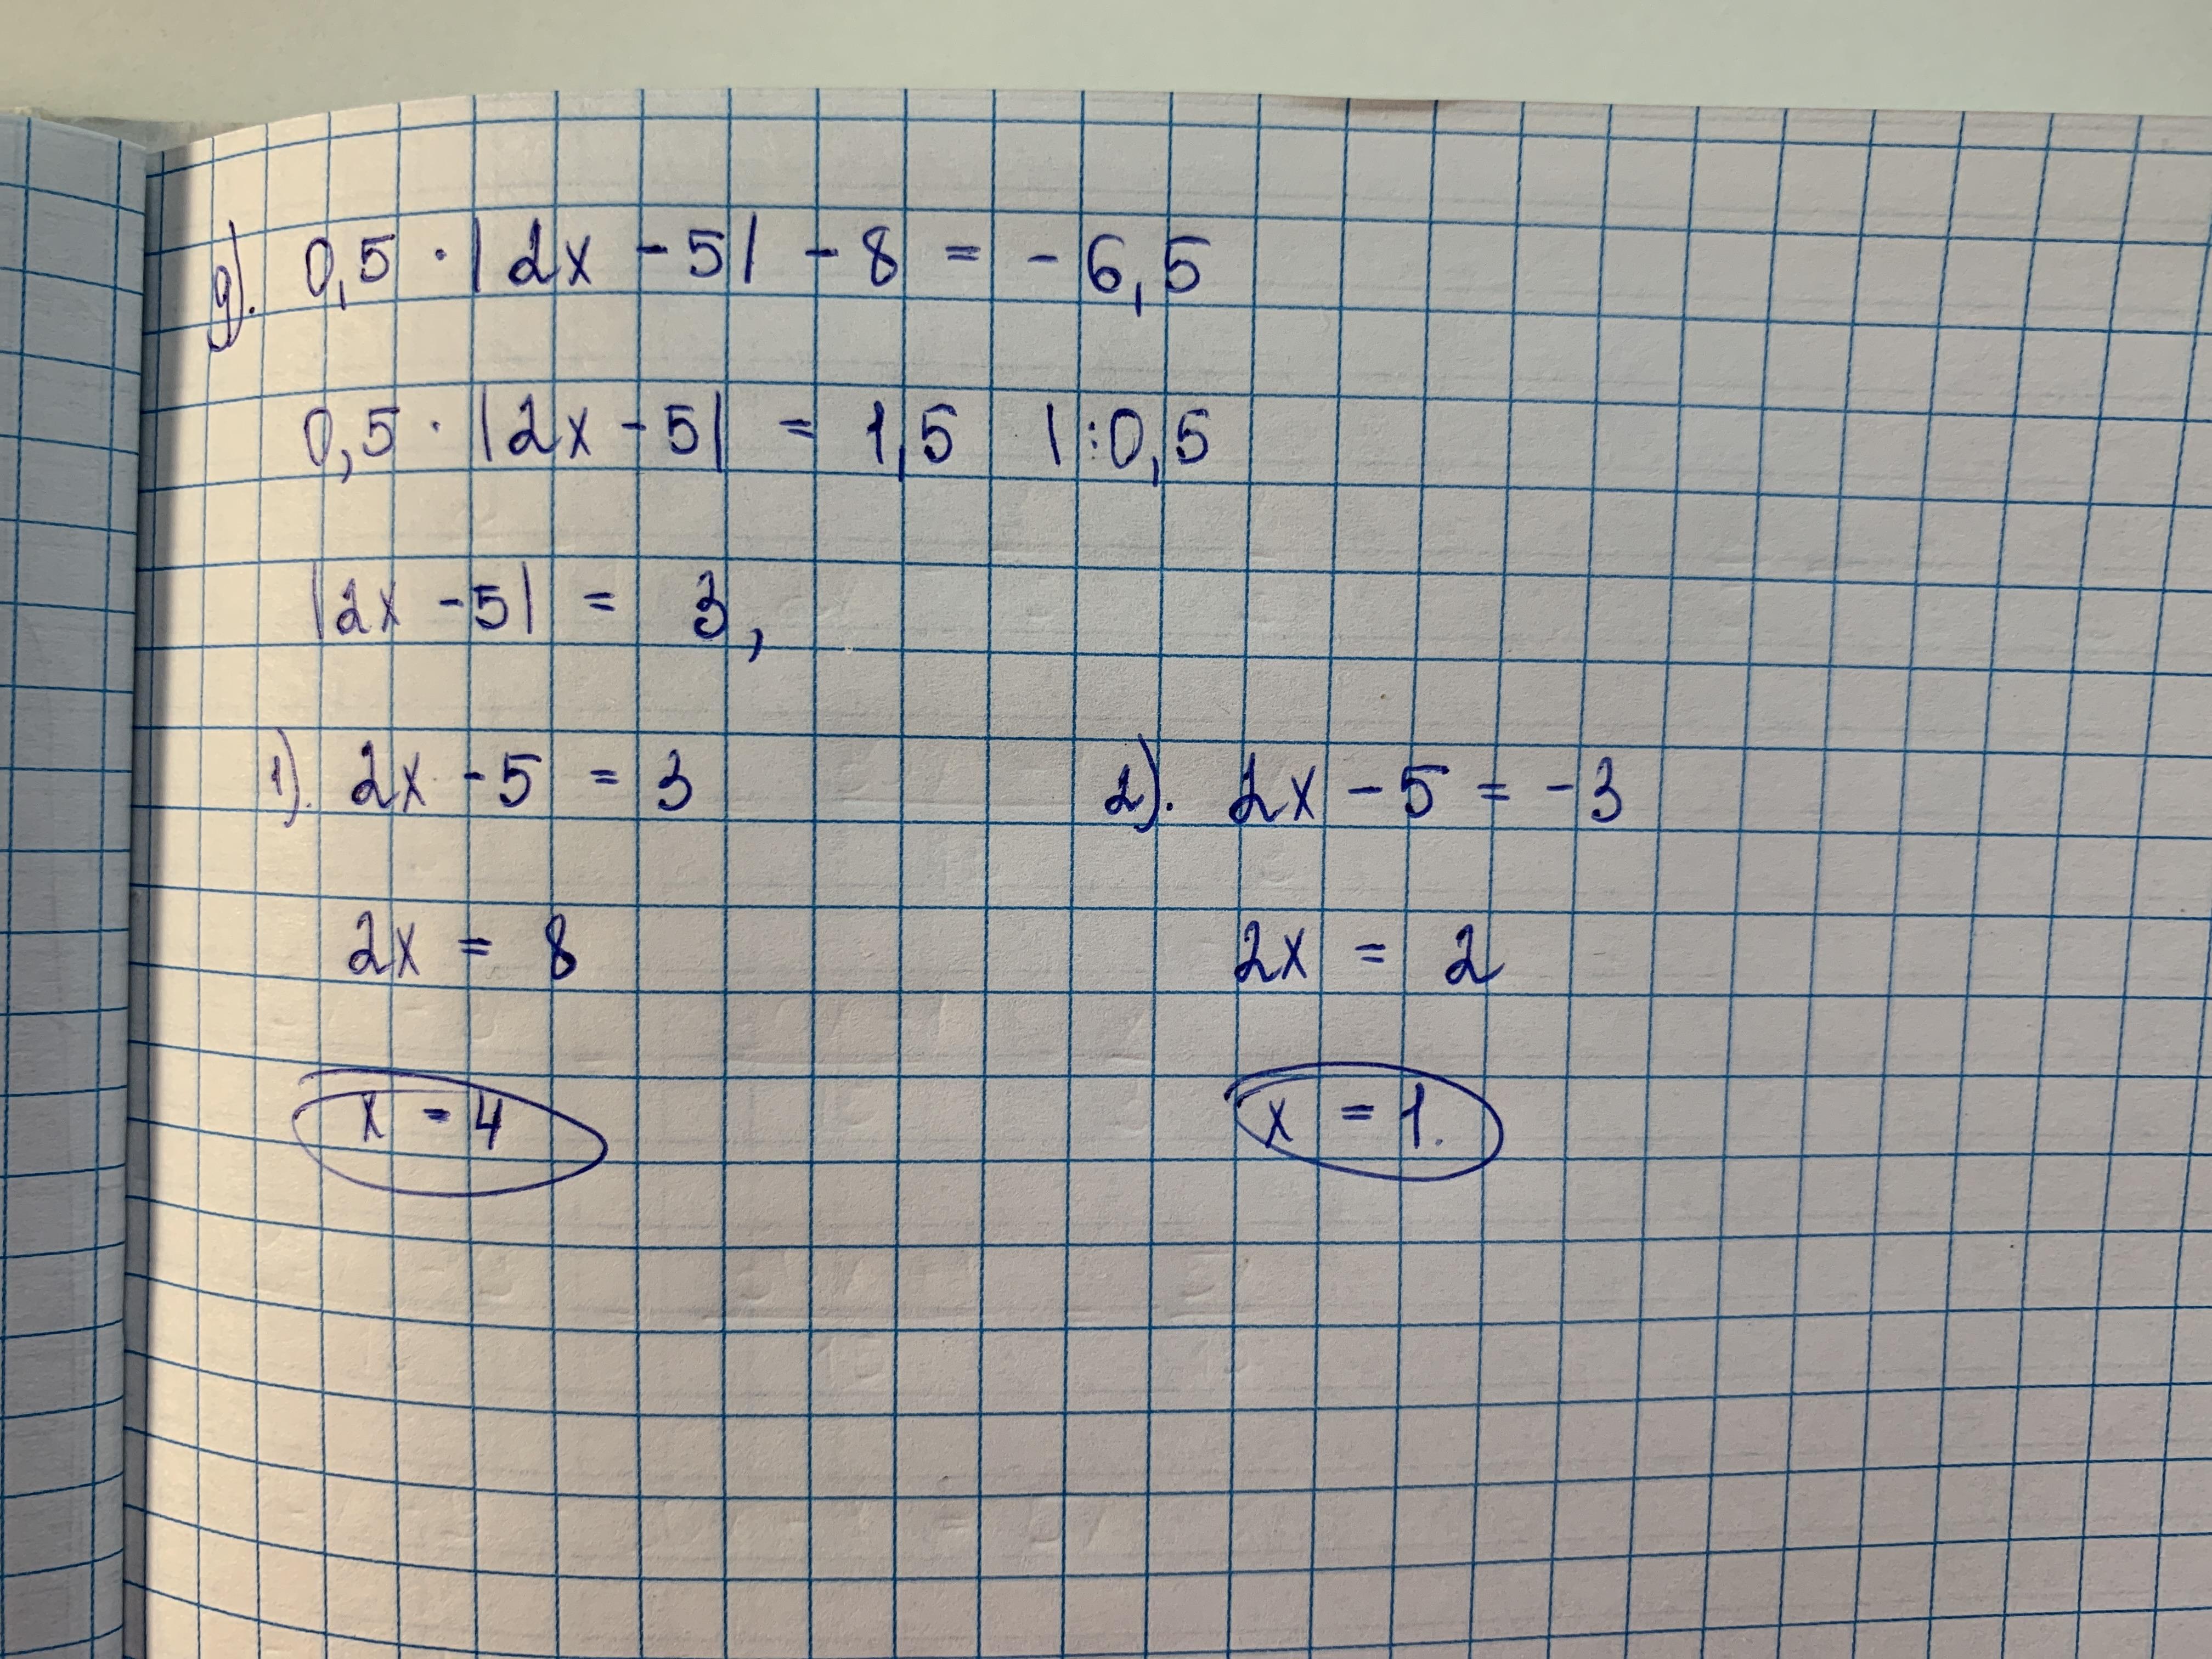 g). 0,5 · |2x - 5| - 8 = - 6,5
0,5 · |2x - 5| = 1,5 | : 0,5
|2x - 5| = 3,
1). 2x - 5 = 3 2). 2x - 5 = -3
2x = 8 2x = 2
x = 4 x = 1.